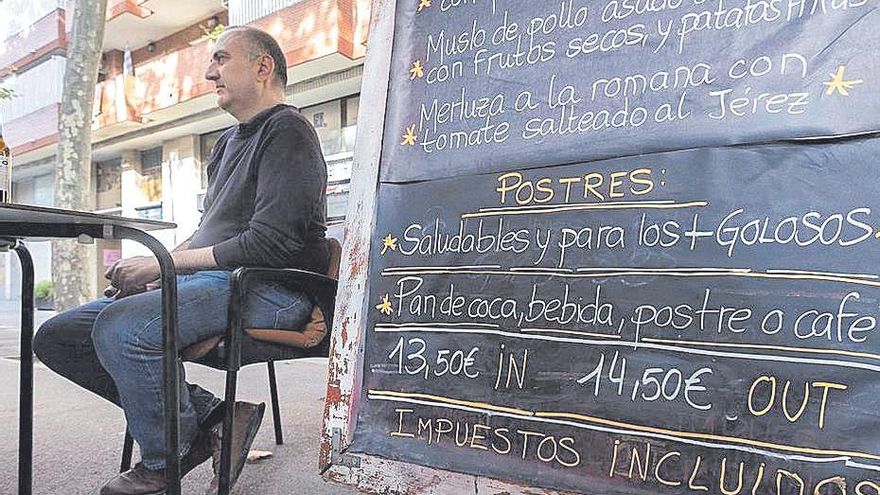 Muslo de pollo asado
con frutos secos, y patatas fritas
Merluza a la romana con
tomate salteado al Jérez
POSTRES:
Saludables y para los + GOLOSOS.
Pan de coca, bebida, postre o cafe
13,50€ iN 14,50€ OUT
iMPUESTOS iNCLUiDOS